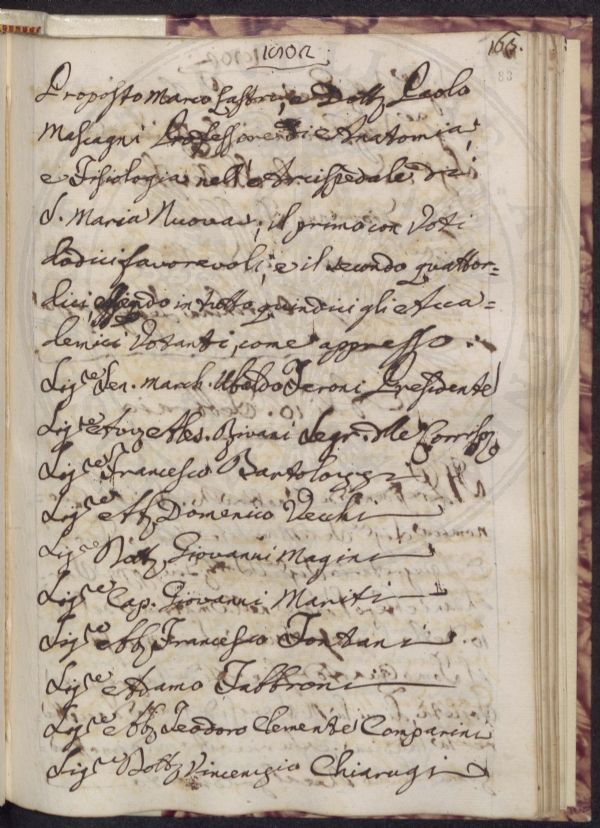 1802
165.
83
Proposto Marco Lastri, e Dott. Paolo
Mascagni Professore di Anatomia,
e Fisiologia nell'Arcispedale di
S. Maria Nuova; il primo con Voti
dodici favorevoli, e il secondo quattor=
dici, essendo in tutto quindici gli Acca=
demici Votanti, come appresso.
Sig.re Sen. March. Ubaldo Feroni Presidente
Sig.re Avv. Aless. Rivani Segr. delle Corrisp.
Sig.re Francesco Bartolozzi
Sig.re Ab. Domenico Vecchi
Sig.re Dott. Giovanni Magini
Sig.re Cap. Giovanni Mariti
Sig.re Ab. Francesco Fontani
Sig.re Adamo Fabbroni
Sig.re Ab. Teodoro Clemente Comparini
Sig.re Dott. Vincenzio Chiarugi